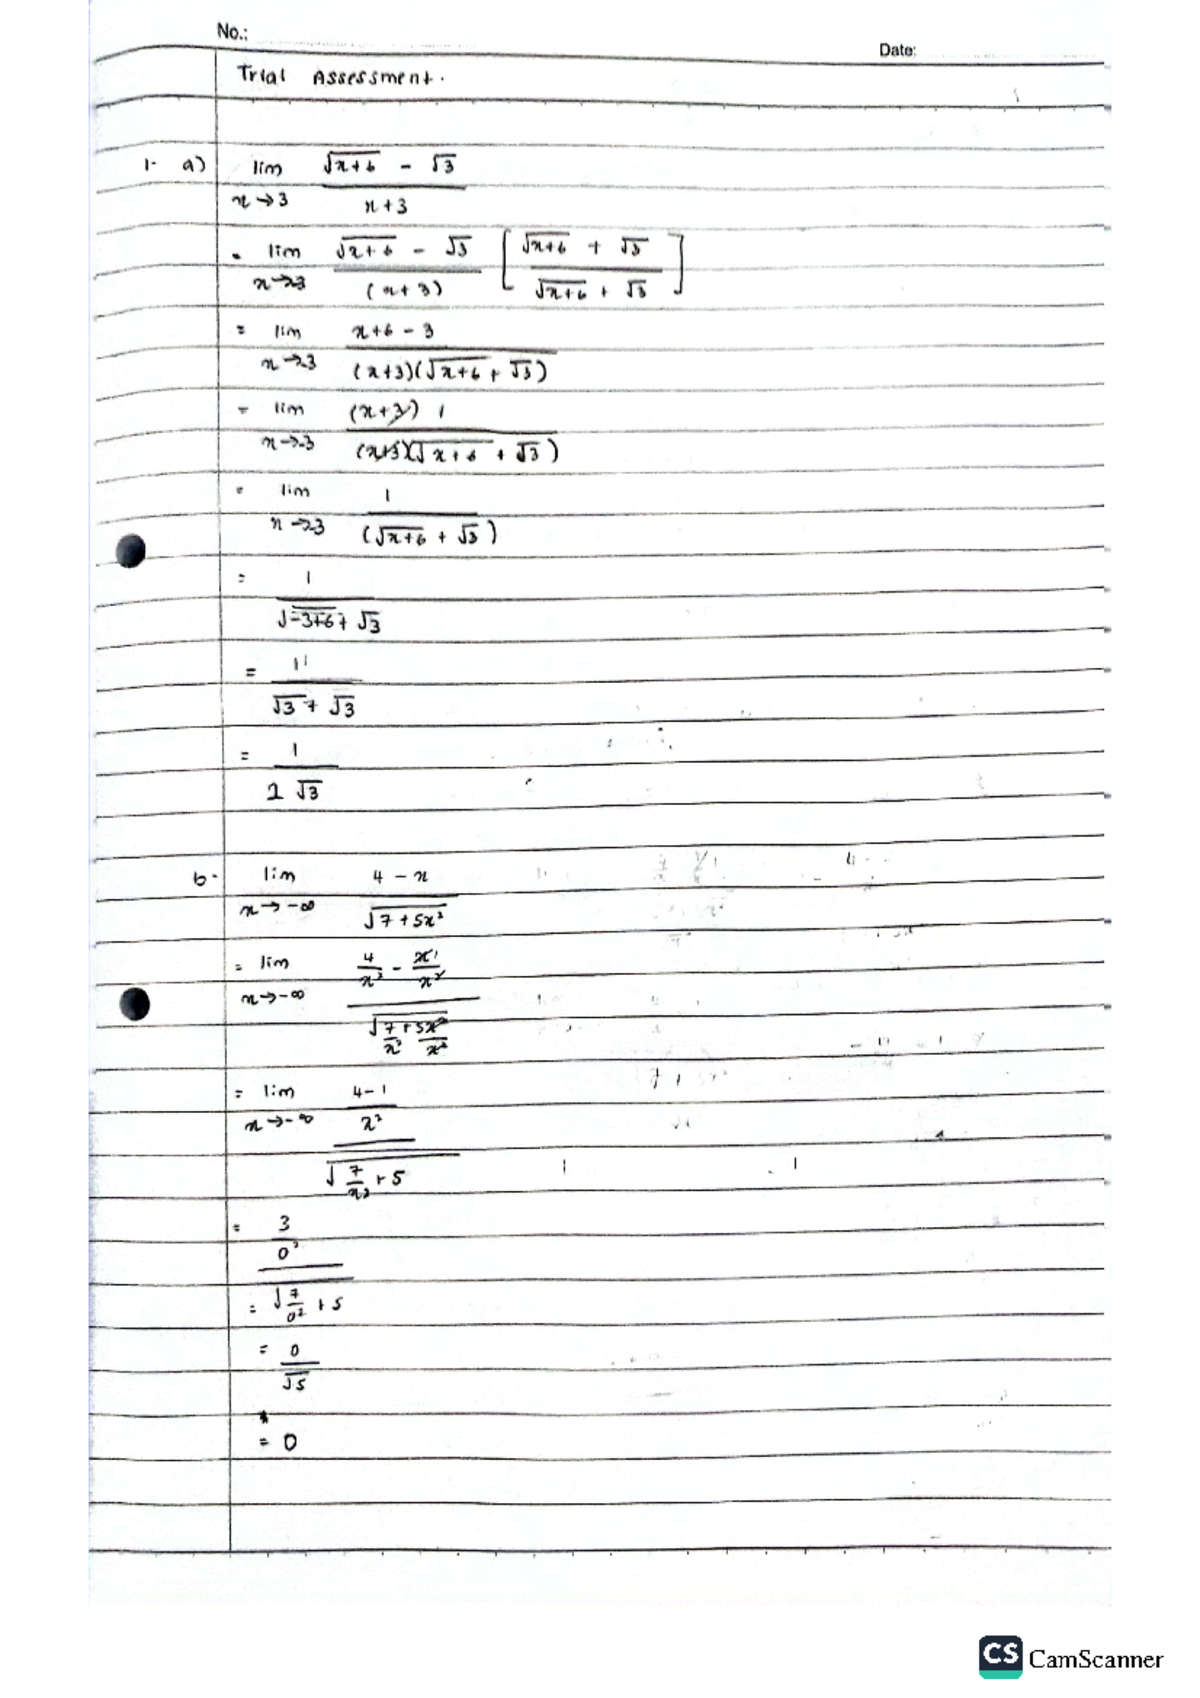 No.:
Date:
Trial Assessment.
1- a) lim √x+6 - √3
x→3 x+3
= lim √x+6 - √3 [ √x+6 + √3 ]
x→-3 (x+3) √x+6 + √3
= lim x+6-3
x→-3 (x+3)(√x+6 + √3)
= lim (x+3) 1
x→-3 (x+3)(√x+6 + √3)
= lim 1
x→-3 (√x+6 + √3)
= 1
√-3+6 + √3
= 1
√3 + √3
= 1
2 √3
b. lim 4 - x
x→-∞ √7+5x²
= lim 4/x² - x/x²
x→-∞ √7/x² + 5x²/x²
= lim 4-1
x→-∞ x²
√7/x² + 5
= 3
0²
= √7/0² + 5
= 0
√5
= 0
CS CamScanner